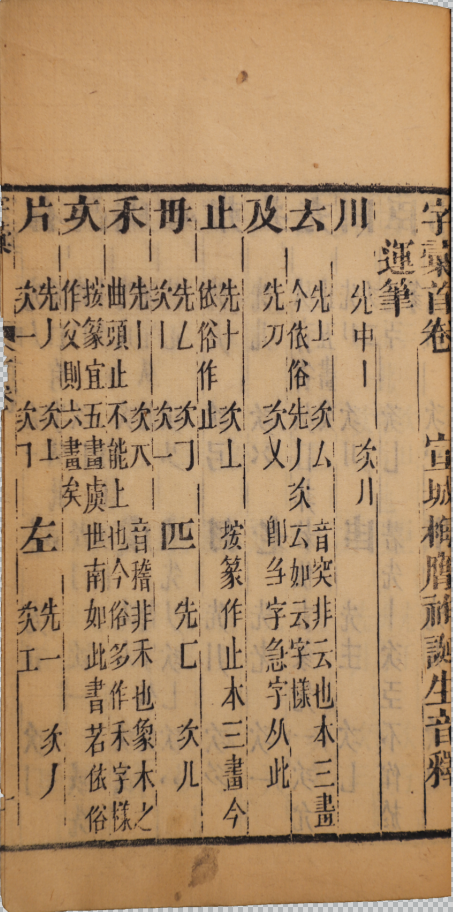 字彙首卷　宣城梅膺祚誕生音釋
運筆
川　先中丨　次丿丨
𠫓　先上　次厶　音突非云也本三畫
今依俗先丿次云如云字様
及　先刀　次乂　卽刍字急字从此
止　先十　次丄　按篆作止本三畫今
依俗作止
毌　先𠃊　次𠃌
次丨　次一　匹　先匚　次儿
禾　先丨　次八　音稽非禾也象木之
曲頭止不能上也今俗多作禾字様
按篆宜五畫虞世南如此書若依俗
作父則六畫矣
片　先丿　次丄
次一　次㇕　左　先一　次丿
次工